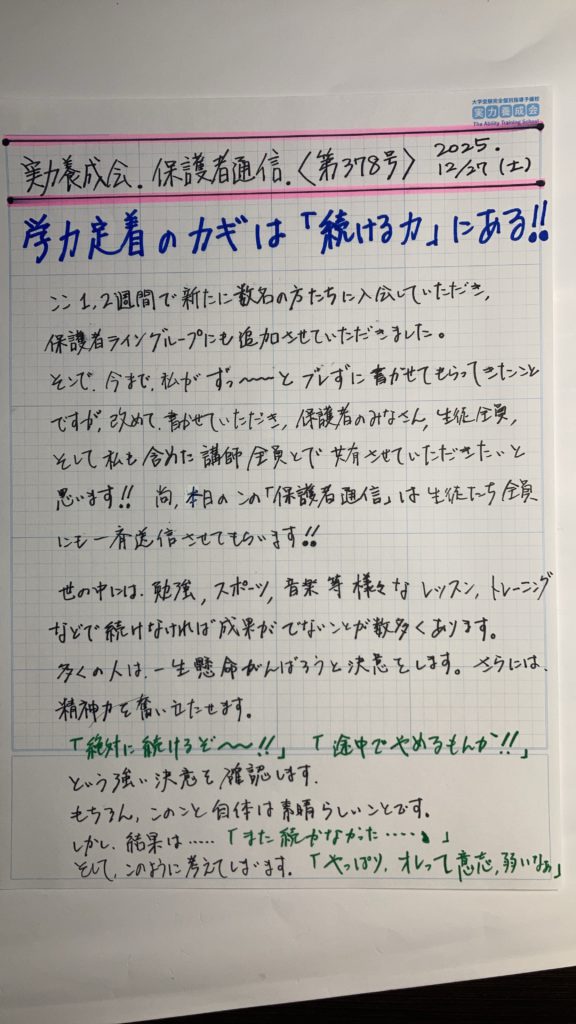 大学受験完全個別指導予備校
実力養成会
The Ability Training School
実力養成会.保護者通信.〈第378号〉 2025.
12/27(土)
学力定着のカギは「続ける力」にある!!
ここ1,2週間で新たに数名の方たちに入会していただき,
保護者ライングループにも追加させていただきました。
そこで,今まで,私がずっ〜〜とブレずに書かせてもらってきたこと
ですが,改めて,書かせていただき,保護者のみなさん,生徒全員,
そして私も含めた講師全員とで共有させていただきたいと
思います!! 尚,本日のこの「保護者通信」は生徒たち全員
にも一斉送信させてもらいます!!
世の中には,勉強,スポーツ,音楽等様々なレッスン,トレーニング
などで続けなければ成果がでないことが数多くあります。
多くの人は,一生懸命がんばろうと決意をします。さらには,
精神力を奮い立たせます。
「絶対に続けるぞ〜〜!!」 「途中でやめるもんか!!」
という強い決意を確認します.
もちろん,このこと自体は素晴らしいことです。
しかし,結果は.....「また続かなかった.....。」
そして,このように考えてしまいます.「やっぱり,オレって意志,弱いなぁ」